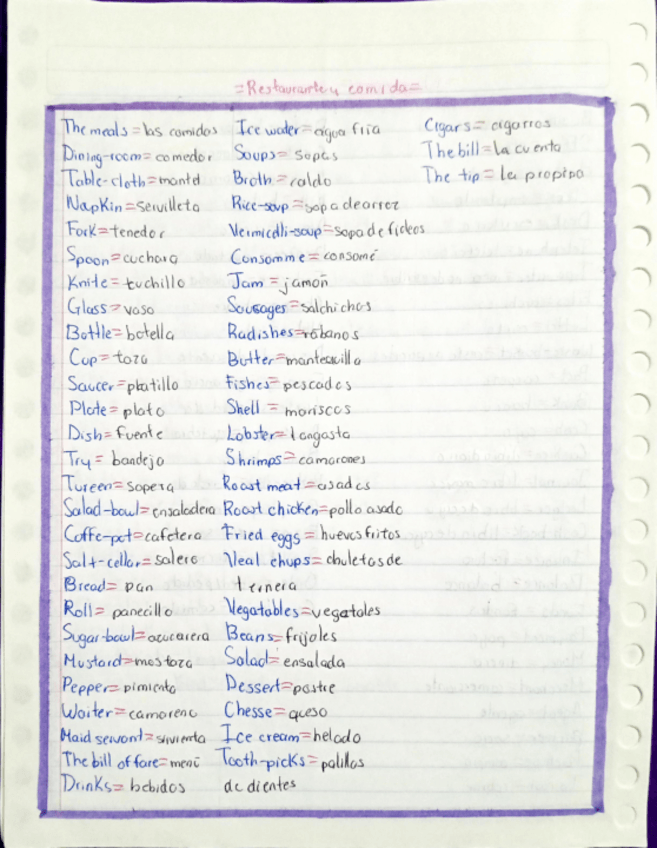 =Restaurante y comida=
The meals=las comidas
Dining-room=comedor
Table-cloth=mantel
Napkin=servilleta
Fork=tenedor
Spoon=cuchara
Knife=cuchillo
Glass=vaso
Bottle=botella
Cup=taza
Saucer=platillo
Plate=plato
Dish=fuente
Try=bandeja
Tureen=sopera
Salad-bowl=ensaladera
Coffe-pot=cafetera
Salt-cellar=salero
Bread=pan
Roll=panecillo
Sugar-bowl=azucarera
Mustard=mostaza
Pepper=pimienta
Waiter=camarero
Maid servant=sirvienta
The bill of fare=menú
Drinks=bebidas
Ice water=agua fria
Soups=sopas
Broth=caldo
Rice-soup=sopa de arroz
Vermicelli-soup=sopa de fideos
Consomme=consomé
Jam=jamón
Sausages=salchichas
Radishes=rábanos
Butter=mantequilla
Fishes=pescados
Shell=mariscos
Lobster=langosta
Shrimps=camarones
Roast meat=asados
Roast chicken=pollo asado
Fried eggs=huevos fritos
Veal chups=chuletas de
ternera
Vegatables=vegetales
Beans=frijoles
Salad=ensalada
Dessert=postre
Chesse=queso
Ice cream=helado
Tooth-picks=palillos
de dientes
Cigars=cigarros
The bill=la cuenta
The tip=la propina